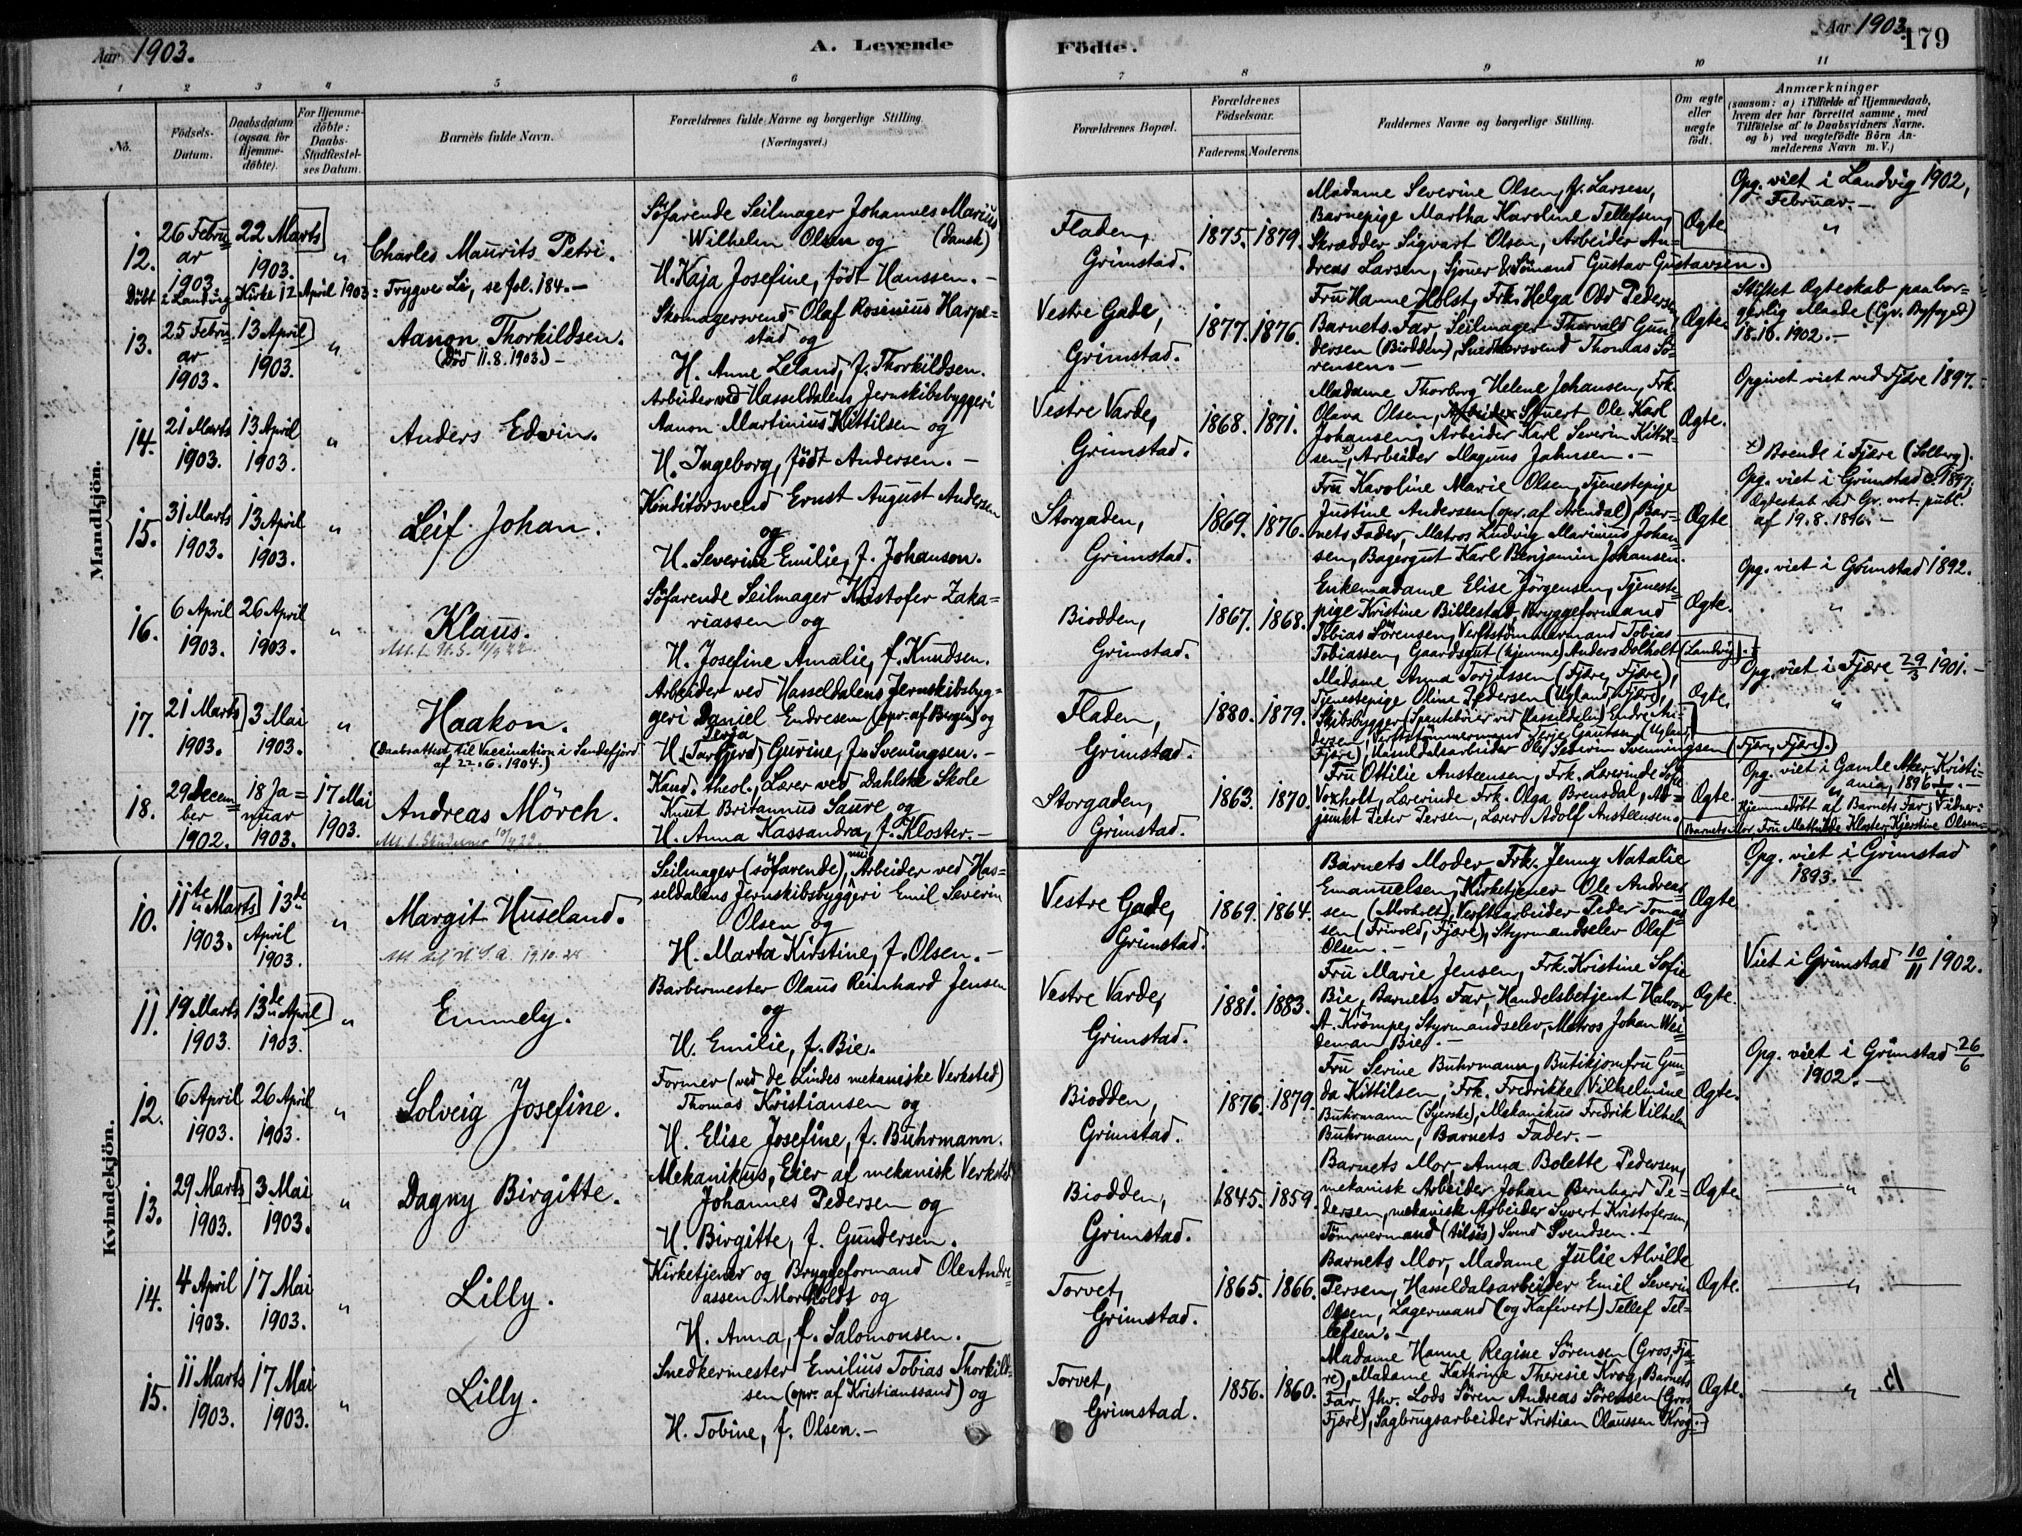 Aar 1903.
A. Levende
Födte.
Aar 1903.
179
1 2 3 4 5 6 7 8 9 10 11
No.
Födsels-
Datum.
Daabsdatum
(ogsaa for
Hjemme-
döbte).
For Hjemme-
döbte:
Daabs-
Stadfæstel-
ses Datum.
Barnets fulde Navn.
Forældrenes fulde Navne og borgerlige Stilling.
(Næringsvei.)
Forældrenes Bopæl.
Forældrenes
Födselsaar.
Faderens. Moderens.
Faddernes Navne og borgerlige Stilling.
Om ægte
eller
uægte
födt.
Anmærkninger
(saasom: a) i Tilfælde af Hjemmedaab,
hvem der har forrettet samme, med
Tilföielse af to Daabsvidners Navne.
og b) ved uægtefödte Börn An-
melderens Navn m. V.)
Mandkjön.
12.
26 Febru=
ar
1903.
22 Marts
1903.
"
Charles Maurits Petri.
Söfarende Seilmager Johannes Marius
Wilhelm Olsen og (Dansk)
H. Kaja Josefine, födt Hanssen. -
Fladen,
Grimstad.
1875. 1879.
Madame Severine Olsen, f. Larsen,
Barnepige Martha Karoline Tellefsen,
Skrædder Sigvart Olsen, Arbeider An=
dreas Larsen, Sjouer & Sömand Gustav Gustavsen.
Ægte
Opg. viet i Landvig 1902,
Februar. -
"
Döbt i Landvig Kirke 12 April 1903: Trygve Li, se fol. 184. -
13.
25 Febru
ar
1903.
13 April
1903.
"
Aanon Thorkildsen.
(Död 11.8.1903.) -
Skomagersvend Olaf Rosinius Harpe=
stad og
H. Anne Leland, f. Thorkildsen.
Vestre Gade,
Grimstad.
1877. 1876.
Fru Hanne Holst, Frk. Helga Odd Pedersen,
Barnets Far, Seilmager Thorvald Gun=
dersen (Biodden), Snedkersvend Thomas Sö-
rensen. -
Ægte.
Stiftet Ægteskab paa bor=
gerlig Maade (Gr. Byfoged)
18.10.1902. -
14.
21 Marts
1903.
13 April
1903.
"
Anders Edvin.
Arbeider ved Hasseldalens Jernskibsbyggeri
Aanon Martinius Kittilsen og
H. Ingeborg, födt Andersen. -
Vestre Varde,
Grimstad.
1868. 1871.
Madame Thorborg Helene Johansen, Frk.
Olava Olsen, Stuert Ole Karl
Johansen, Arbeider Karl Severin Kittil=
sen, Arbeider Magnus Jahnsen. -
Ægte.
Opgivet viet ved Fjære 1897. -
x) Boende i Fjære (Solberg).
15.
31 Marts
1903.
13 April
1903.
"
Leif Johan.
Konditorsvend Ernst August Andersen
og
H. Severine Emilie, f. Johanson.
Storgaden,
Grimstad.
1869. 1876.
Fru Karoline Marie Olsen, Tjenestepige
Justine Andersen (opr. af Arendal), Bar=
nets Fader, Matros Ludvig Marinius Johan=
sen, Bagergut Karl Benjamin Johansen.
Ægte
Opg. viet i Grimstad 1897.
Ægteskab ved Gr. not. publ.
af 19.8.1896. -
16.
6 April
1903.
26 April
1903.
"
Klaus.
Söfarende Seilmager Kristofer Zaka=
riassen og
H. Josefine Amalie, f. Knudsen.
Biodden,
Grimstad.
1867. 1868.
Enkemadame Elise Jörgensen, Tjeneste=
pige Kristine Billestad, Bryggeformand
Tobias Sörensen, Verftstömmermand Tobias
Tobiassen, Gaardsgut (hjemme) Anders Dolholt (Landvig). -
Ægte.
Opg. viet i Grimstad 1892.
"
17.
21 Marts
1903.
3 Mai
1903.
"
Haakon.
(Daabsattest til Vaccination i Sandefjord
af 22.6.1904.)
Arbeider ved Hasseldalens Jernskibsbyg=
geri Daniel Endresen (opr. af Bergen) og
Terja
H. (Targjerd) Gurine, f. Sveningsen. -
Fladen,
Grimstad.
1880. 1879.
Madame Anna Torjussen (Fjære, Fjære),
Tjenestepige Oline Pedersen (Ugland, Fjære),
Skibsbygger (Spanteböier ved Hasseldalen) Endre An=
dersen, Verftstömmermand Terje Gautsen (Ugland,
Fjære), Hasseldalsarbeider Ole Severin Svenningsen (Fjære, Fjære).
Ægte.
Opg. viet i Fjære 29/3 1901. -
"
18.
29 Decem
ber
1902.
18 Ja=
nuar
1903.
17 Mai
1903.
Andreas Mörch.
Kand. theol., Lærer ved Dahlske Skole
Knut Britannus Saure og
H. Anna Kassandra, f. Kloster. -
Storgaden,
Grimstad.
1863. 1870.
Fru Ottilie Austeensen, Frk. Lærerinde
Voxholt, Lærerinde Frk. Olga Brensdal, Ad=
junkt Peter Persen, Lærer Adolf Austeensen.
Ægte.
Opg. viet i Gamle Aker, Kristi=
ania, 1896. -
Hjemmedöbt af Barnets Far; Vidner:
Barnets Mor Fru Mathilde Kloster, Kjerstine Olsen.
Kvindekjön.
10.
11te Marts
1903.
13de
April
1903.
"
Margit Huseland.
19.10.28
Seilmager (söfarende), nu Arbeider ved Has=
seldalens Jernskibsbyggeri Emil Severin
Olsen og
H. Marta Kirstine, f. Olsen. -
Vestre Gade,
Grimstad.
1869. 1864.
Barnets Moder, Frk. Jenny Natalie
Emanuelsen, Kirketjener Ole Andreas=
sen (Morholt), Verftsarbeider Peder Tomas
sen (Frivold, Fjære), Styrmandselev Olaf
Olsen. -
Ægte
Opg. viet i Grimstad
1893. -
11.
19 Marts
1903.
13de April
1903.
"
Emmely.
Barbermester Olaus Reinhard Jensen
og
H. Emilie, f. Bie.
Vestre Varde,
Grimstad.
1881. 1883.
Fru Marie Jensen, Frk. Kristine Sofie
Bie, Barnets Far, Handelsbetjent Halvor
A. Krömpe, Styrmandselev, Matros Johan Wei
deman Bie. -
Ægte.
Viet i Grimstad 10/11 1902.
12.
6 April
1903.
26 April
1903.
"
Solveig Josefine.
Former (ved de Lindes mekaniske Verksted)
Thomas Kristiansen og
H. Elise Josefine, f. Buhrmann.
Biodden,
Grimstad.
1876. 1879.
Fru Serine Buhrmann, Butikjomfru Gun=
da Kittilsen, Frk. Fredrikke Vilhelmine
Buhrmann (Syerske), Mekanikus Fredrik Vilhelm
Buhrmann, Barnets Fader. -
Ægte.
Opg. viet i Grimstad 26/6
1902. -
13.
29 Marts
1903.
3 Mai
1903.
"
Dagny Birgitte.
Mekanikus, Eier af mekanisk Verksted
Johannes Pedersen og
H. Birgitte, f. Gundersen.
Biodden,
Grimstad.
1845. 1859.
Barnets Mor, Anna Bolette Pedersen,
mekanisk Arbeider Johan Bernhard Pe=
dersen, mekanisk Arbeider Syvert Kristofersen,
Tömmermand (tilsös) Svend Svendsen. -
Ægte.
"
14.
4 April
1903.
17 Mai
1903.
"
Lilly.
Kirketjener og Bryggeformand Ole Andre
assen Morholdt og
H. Anna, f. Salomonsen.
Torvet,
Grimstad.
1865. 1866.
Barnets Mor, Madame Julie Alvilde
Persen, Hasseldalsarbeider Emil Severin
Olsen, Lagermand (og Kafévert) Tellef Tel=
lefsen. -
Ægte.
"
15.
11 Marts
1903.
17 Mai
1903.
"
Lilly.
Snedkermester Emilius Tobias Thorkild=
sen (opr. af Kristianssand) og
H. Tobine, f. Olsen. -
Torvet,
Grimstad.
1856. 1860.
Madame Hanne Regine Sörensen (Gros, Fjæ=
re), Madame Kathrine Theresie Krog, Barnets
Far, fhv. Lods Sören Andreas Sörensen (Gros,
Fjære), Sagbrugsarbeider Kristian Olaussen Krog. -
Ægte.
"